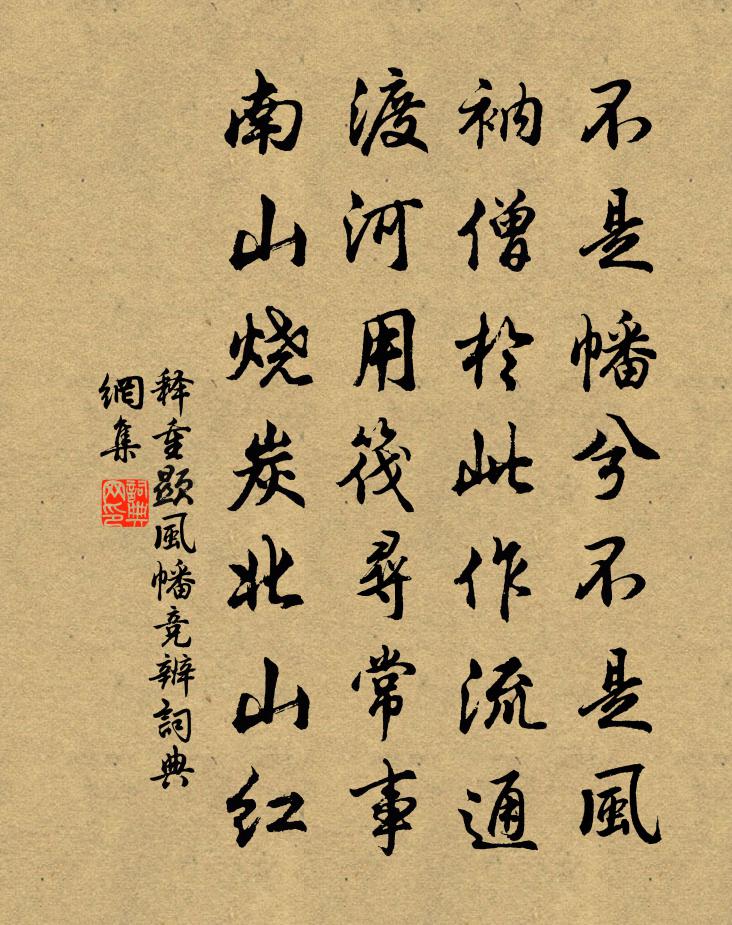 不是幡兮不是風
衲僧於此作流通
渡河用筏尋常事
南山烧炭北山红
释重顯風幡竞辨詞典
網集
詞典网印